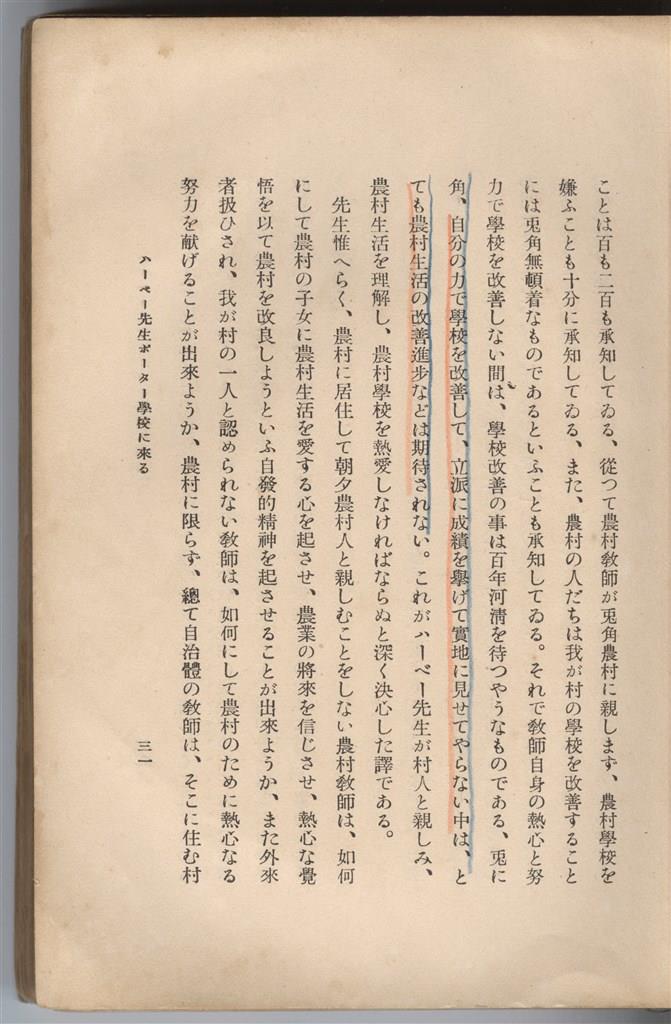 ことは百も二百も承知してゐる、從つて農村教師が兎角農村に親しまず、農村學校を
嫌ふことも十分に承知してゐる、また、農村の人だちは我が村の學校を改善すること
には兎角無頓着なものであるといふことも承知してゐる。それで教師自身の熱心と努
力で學校を改善しない間は、學校改善の事は百年河淸を待つやうなものである、兎に
角、自分の力で學校を改善して、立派に成績を擧げて實地に見せてやらない中は、と
ても農村生活の改善進步などは期待されない。これがハーベー先生が村人と親しみ、
農村生活を理解し、農村學校を熱愛しなければならぬと深く決心した譯である。
先生惟へらく、農村に居住して朝夕農村人と親しむことをしない農村教師は、如何
にして農村の子女に農村生活を愛する心を起させ、農業の將來を信じさせ、熱心な覺
悟を以て農村を改良しようといふ自發的精神を起させることが出來ようか、また外來
者扱ひされ、我が村の一人と認められない教師は、如何にして農村のために熱心なる
努力を献げることが出來ようか、農村に限らず、總て自治體の教師は、そこに住む村
ハーベー先生ポーター學校に來る
三一